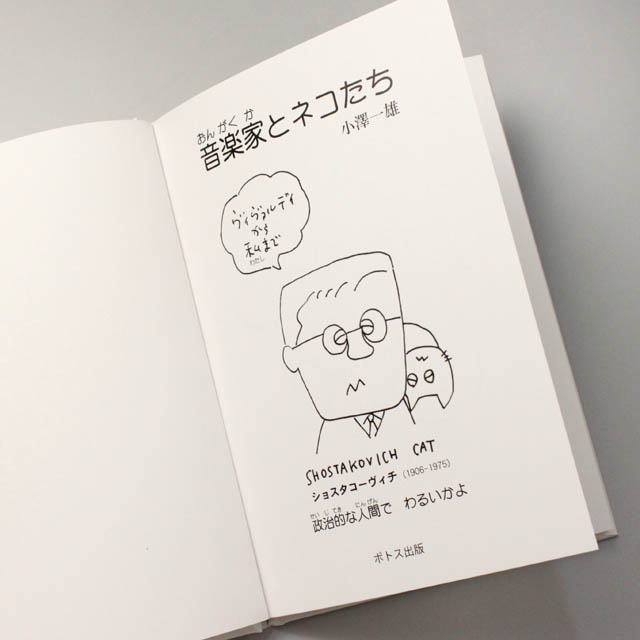 おんがくか
音楽家とネコたち
小澤一雄
ヴィヴァルディ
から
私まで
わたし
SHOSTAKOVICH CAT
ショスタコーヴィチ (1906-1975)
せいじてき にんげん
政治的な人間で わるいかよ
ポトス出版